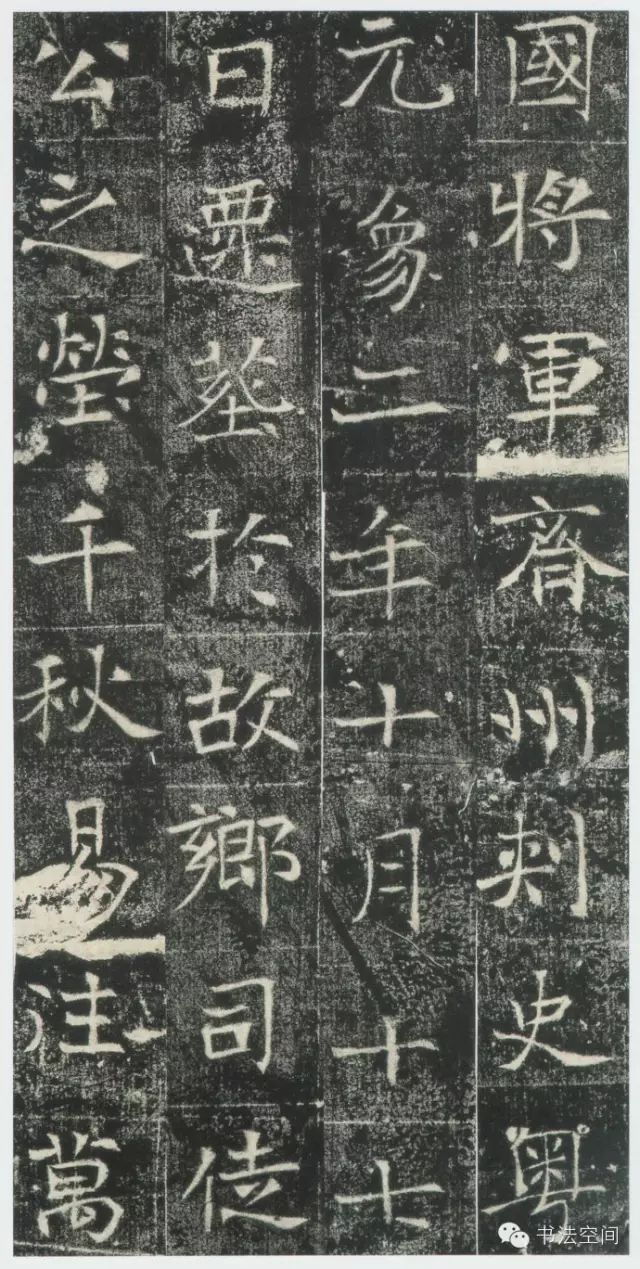 國將軍齊州刺史粵
元象二年十月十七
日遷葬於故鄉司徒
公之塋千秋易注萬
书法空间